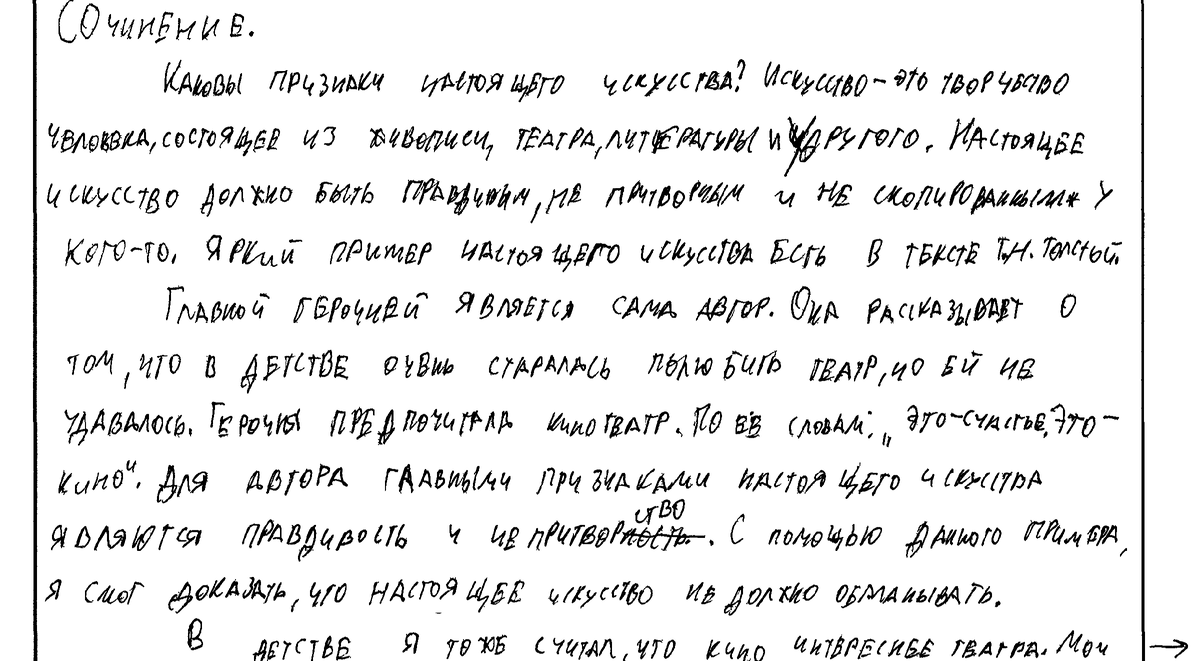 Сочинение.
Каковы признаки настоящего искусства? Искусство – это творчество
человека, состоящее из живописи, театра, литературы и другого. Настоящее
искусство должно быть правдивым, не притворным и не скопированным у
кого-то. Яркий пример настоящего искусства есть в тексте Т.Н. Толстой.
Главной героиней является сама автор. Она рассказывает о
том, что в детстве очень старалась полюбить театр, но ей не
удавалось. Героиня предпочитала кинотеатр. По её словам: „Это – счастье. Это –
кино“. Для автора главными признаками настоящего искусства
являются правдивость и непритворство. С помощью данного примера,
я смог доказать, что настоящее искусство не должно обманывать.
В детстве я тоже считал, что кино интереснее театра. Мои